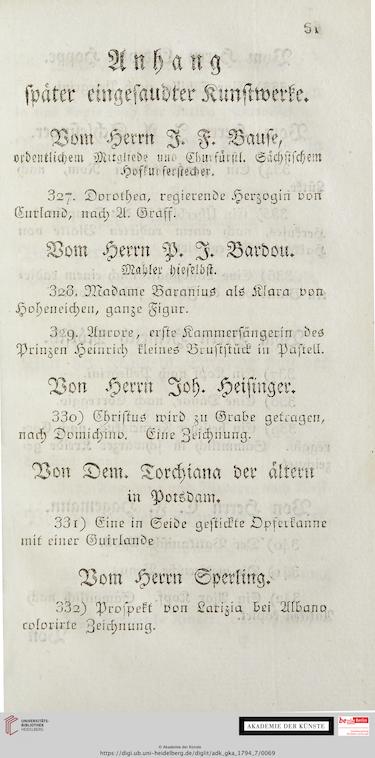 51
Anhang
später eingesandter Kunstwerke.
Vom Herrn J. F. Bause,
ordentlichem Mitgliede und Churfürstl. Sächsischem
Hofkupferstecher.
327. Dorothea, regierende Herzogin von
Curland, nach A. Graff.
Vom Herrn P. J. Bardou.
Mahler hieselbst.
328. Madame Baranius als Klara von
Hoheneichen, ganze Figur.
329. Aurore, erste Kammersängerin des
Prinzen Heinrich kleines Bruststück in Pastell.
Von Herrn Joh. Heisinger.
330) Christus wird zu Grabe getragen,
nach Domichino. Eine Zeichnung.
Von Dem. Torchiana der ältern
in Potsdam.
331) Eine in Seide gestickte Opferkanne
mit einer Guirlande
Vom Herrn Sperling.
332) Prospekt von Larizia bei Albano
colorirte Zeichnung.
UNIVERSITÄTS-
BIBLIOTHEK
HEIDELBERG
AKADEMIE DER KÜNSTE
© Akademie der Künste
https://digi.ub.uni-heidelberg.de/diglit/adk_gka_1794_7/0069